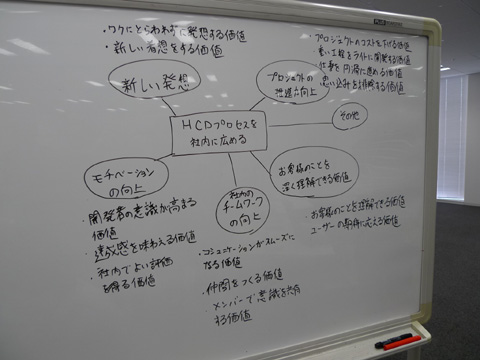 ・ワクにとらわれずに発想する価値
・新しい着想をする価値
新しい発想
・プロジェクトのコストを下げる価値
・重い工程をライトに開発する価値
・仕事を円滑に進める価値
・思い込みを排除する価値
プロジェクトの
推進力向上
その他
HCDプロセスを
社内に広める
モチベーション
の向上
・開発者の意識が高まる
価値
・達成感を味わえる価値
・社内でよい評価
を得る価値
社内の
チームワーク
の向上
・コミュニケーションがスムーズに
なる価値
・仲間をつくる価値
・メンバーで意識を共有
する価値
お客様のことを
深く理解できる価値
・お客様のことを理解できる価値
・ユーザーの期待に応える価値